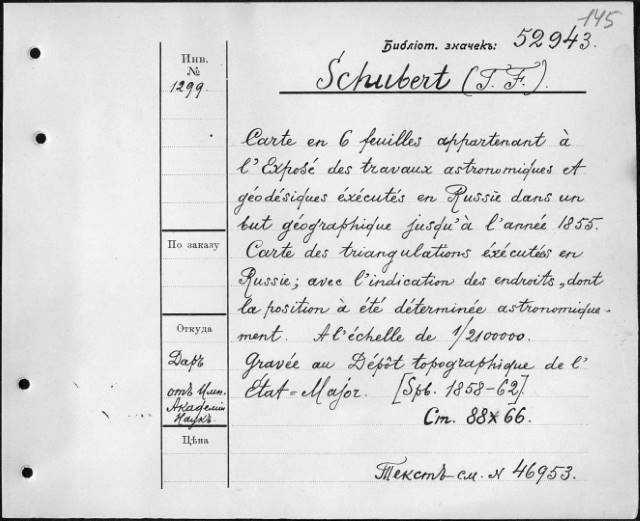 145
Библіот. значекъ: 52943.
Инв.
№
1299.
Schubert (T. F.).
Carte en 6 feuilles appartenant à
l'Exposé des travaux astronomiques et
géodésiques éxécutés en Russie dans un
but géographique jusqu'à l'année 1855.
Carte des triangulations éxécutées en
Russie; avec l'indication des endroits, dont
la position à été déterminée astronomique-
ment. A l'échelle de 1/2100000.
Gravée au Dépôt topographique de l'
État-Major. [Spb. 1858-62].
Ст. 88×66.
Текстъ см. N 46953.
По заказу
Откуда
Даръ
отъ Имп.
Академіи
Наукъ.
Цѣна